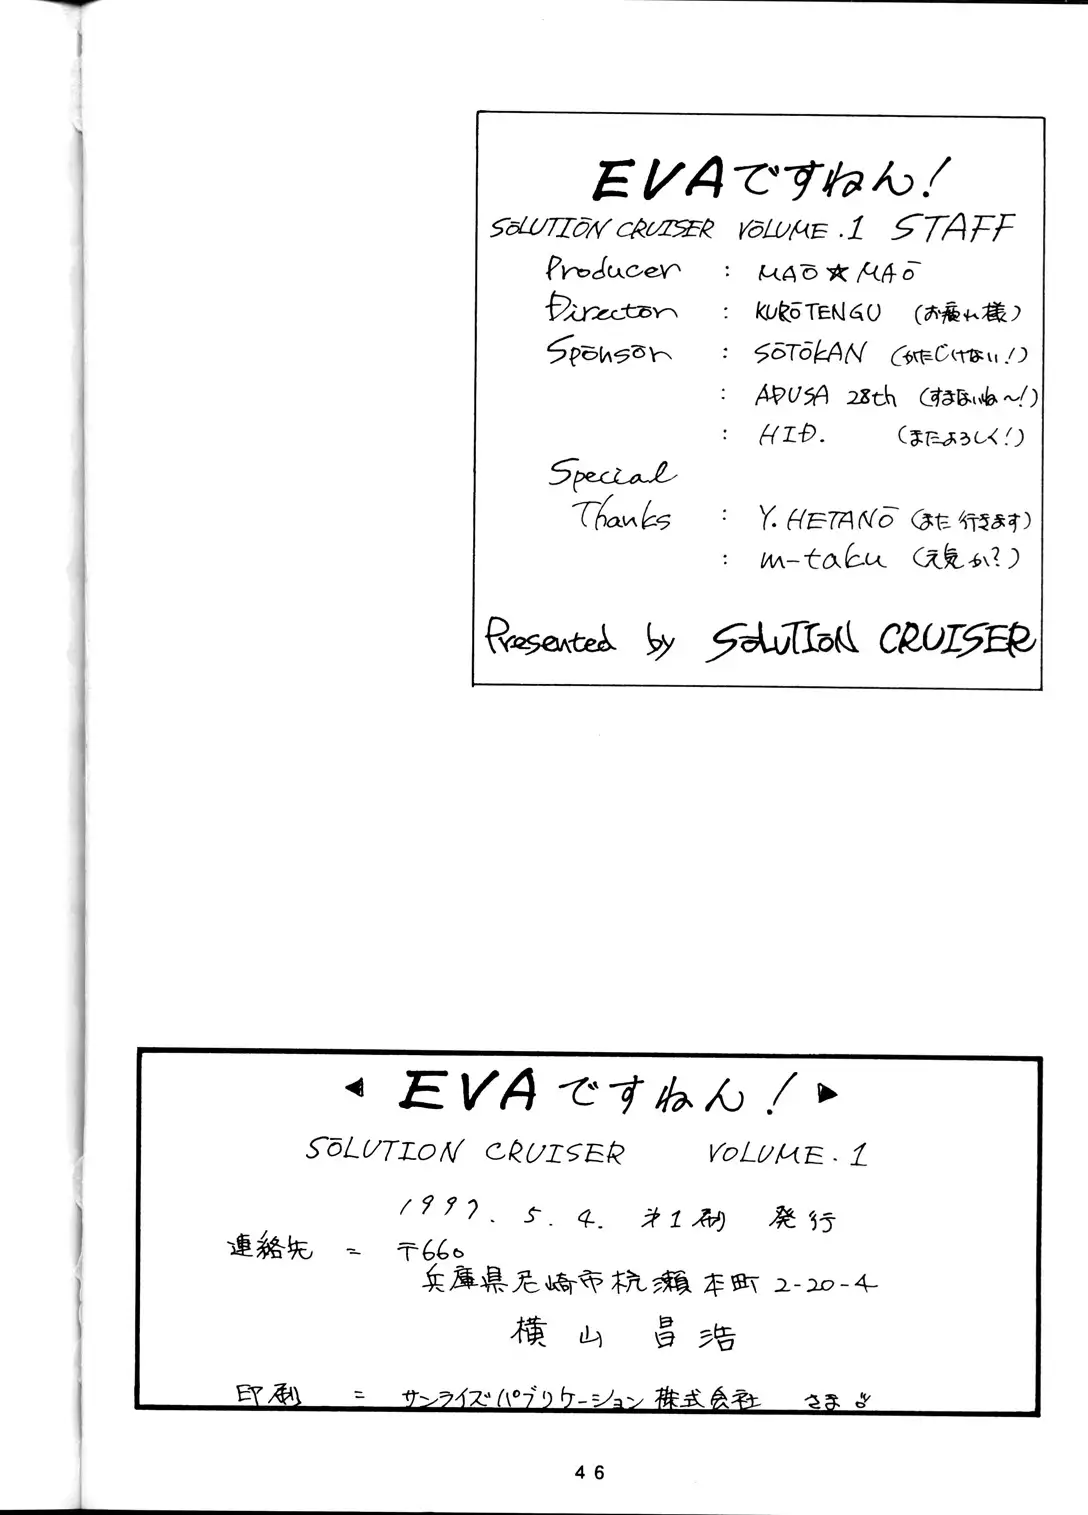 EVAですねん!
SOLUTION CRUISER VOLUME.1 STAFF
Producer : MAO★MAO
Director : KUROTENGU (お疲れ様)
Sponsor : SOTOKAN (かたじけない!)
: ADUSA 28th (すまないね〜!)
: HID. (またよろしく!)
Special
Thanks : Y.HETANO (また行きます)
: m-taku (元気か?)
Presented by SOLUTION CRUISER
◀ EVAですねん! ▶
SOLUTION CRUISER VOLUME.1
1997.5.4. 第1刷 発行
連絡先 = 〒660
兵庫県尼崎市杭瀬本町2-20-4
横山 昌浩
印刷 = サンライズパブリケーション株式会社 さま
46